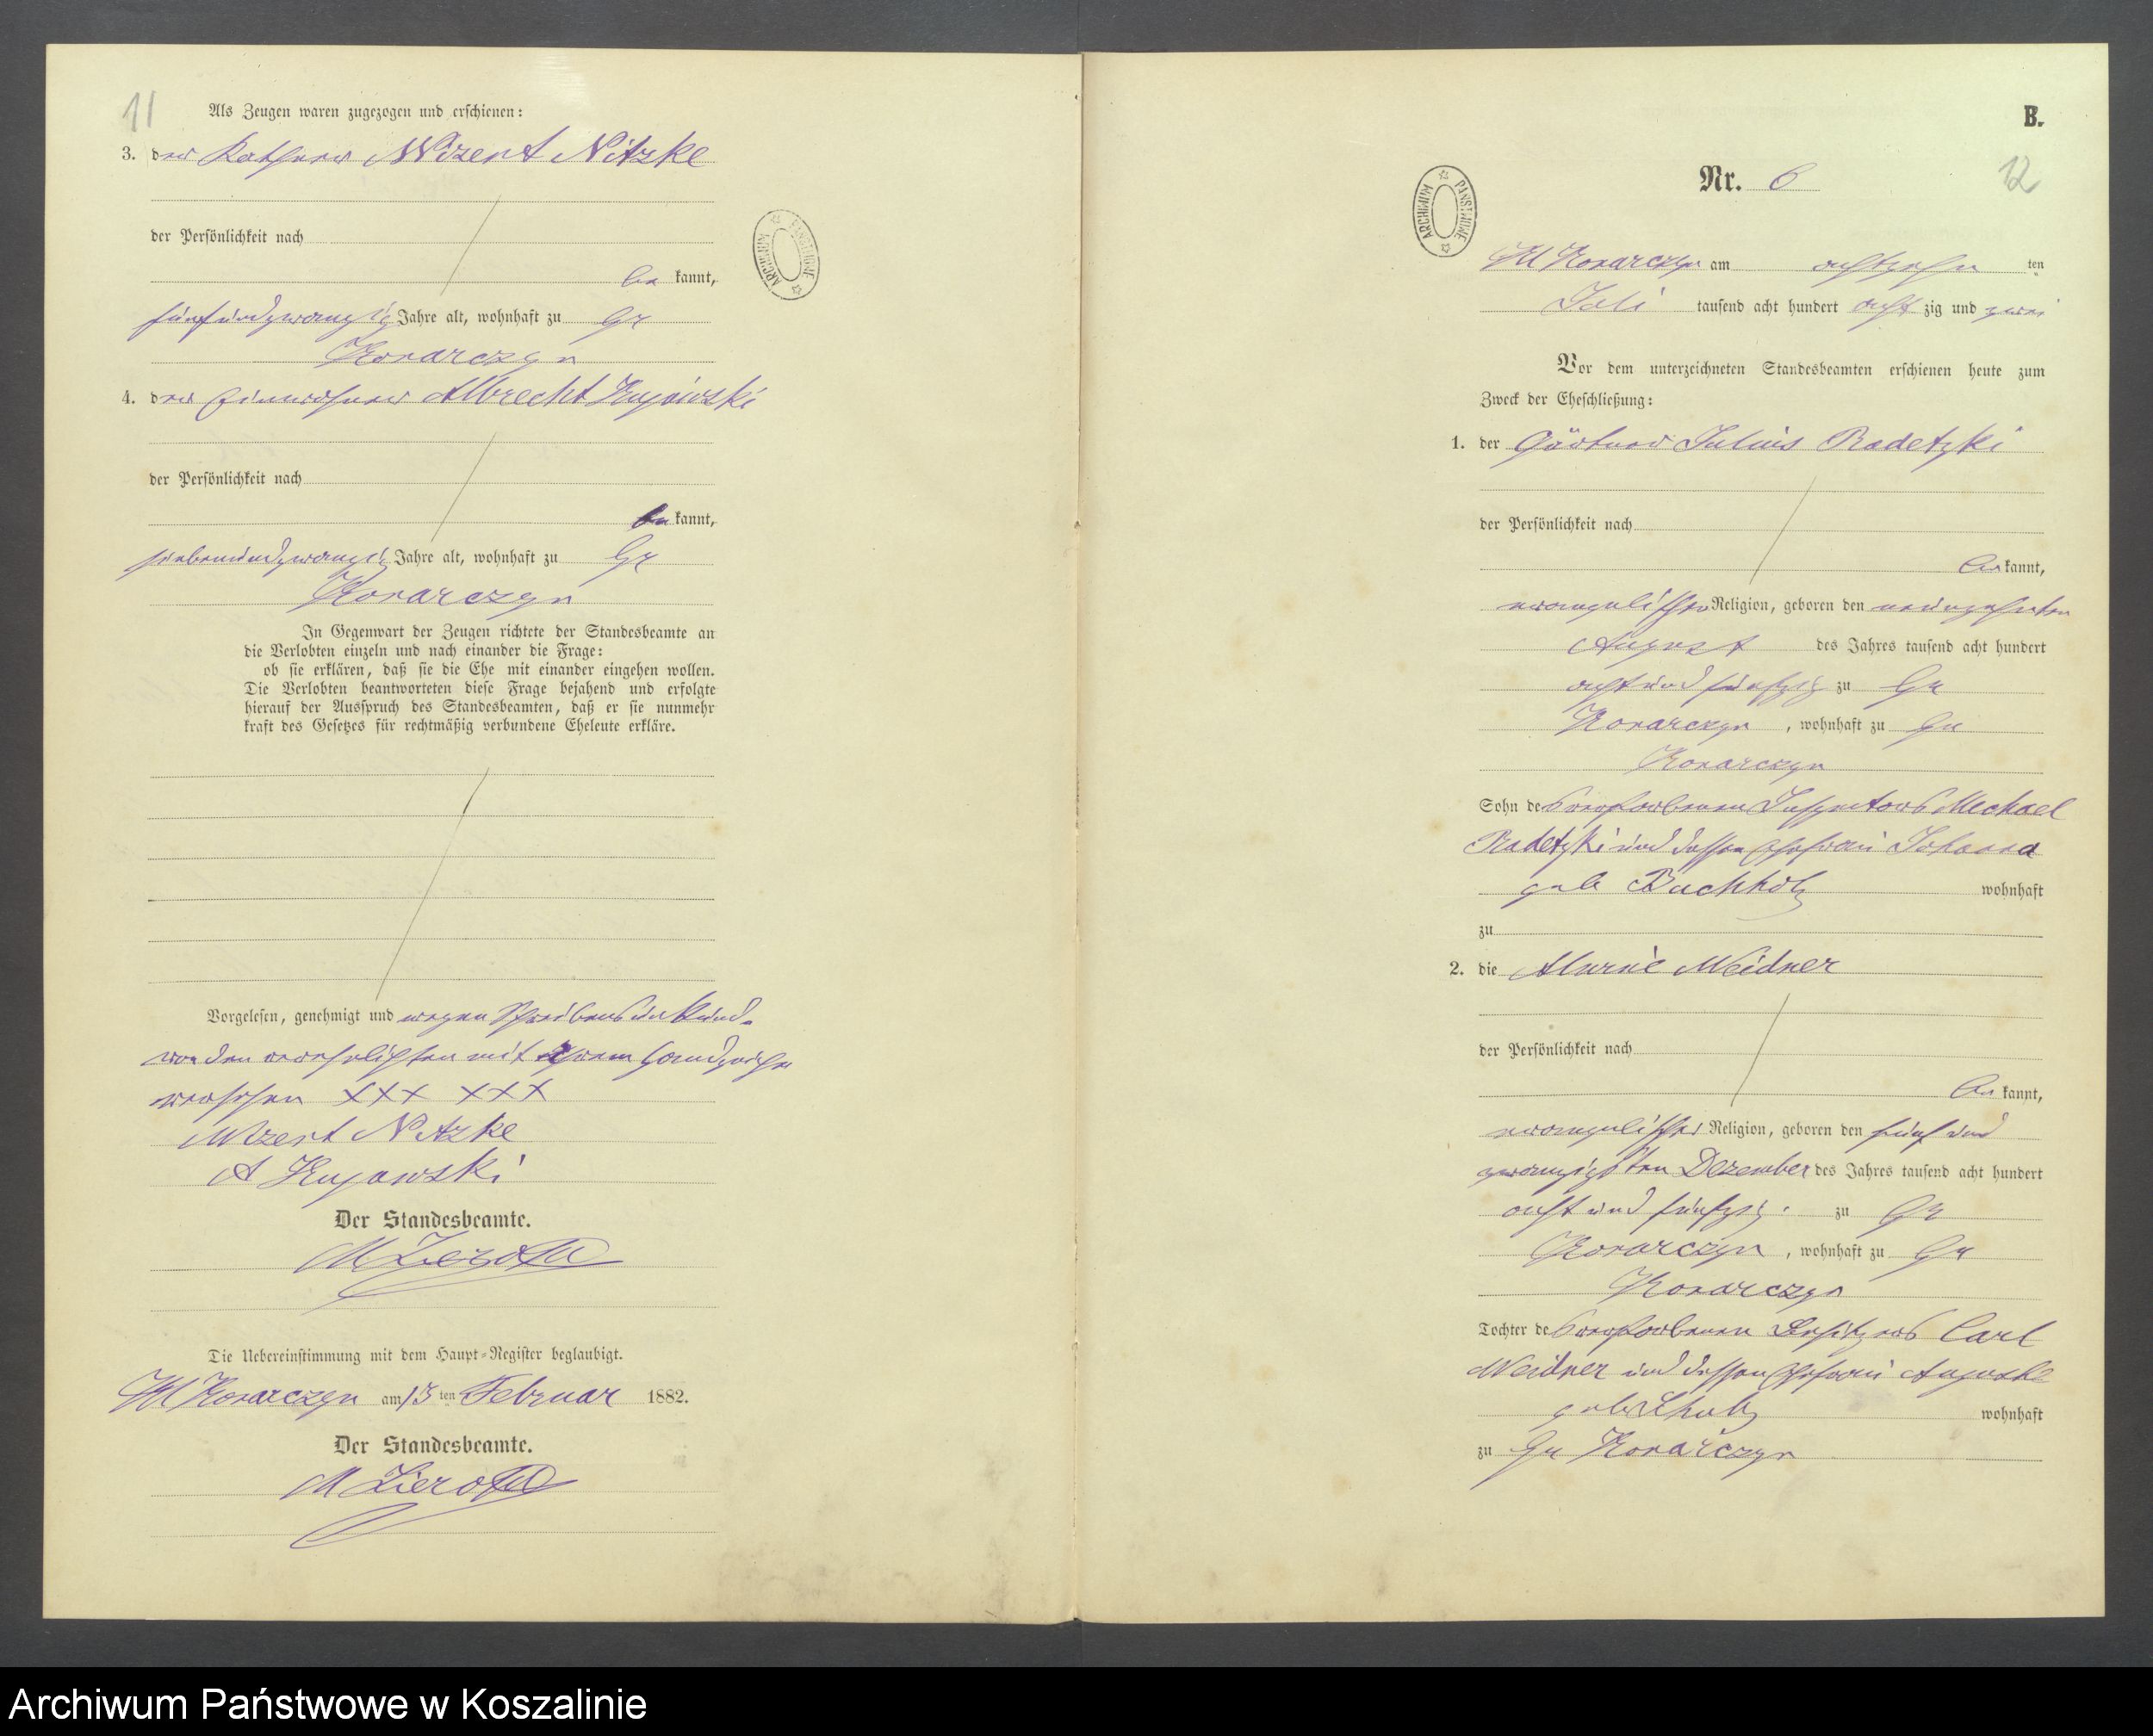 11
Als Zeugen waren zugezogen und erschienen:
3. der Kathner Wizent Nitzke
der Persönlichkeit nach
be kannt,
fünfundzwanzig Jahre alt, wohnhaft zu Gr
Konarczyn
4. der Einwohner Albrecht Kujawski
der Persönlichkeit nach
be kannt,
siebenundzwanzig Jahre alt, wohnhaft zu Gr
Konarczyn
In Gegenwart der Zeugen richtete der Standesbeamte an
die Verlobten einzeln und nach einander die Frage:
ob sie erklären, daß sie die Ehe mit einander eingehen wollen.
Die Verlobten beantworteten diese Frage bejahend und erfolgte
hierauf der Ausspruch des Standesbeamten, daß er sie nunmehr
kraft des Gesetzes für rechtmäßig verbundene Eheleute erkläre.
Vorgelesen, genehmigt und wegen Schreibensunkunde
von den verehelichten mit ihrem Handzeichen
versehen XXX XXX
Wizent Nitzke
A Kujawski
Der Standesbeamte.
Die Uebereinstimmung mit dem Haupt-Register beglaubigt.
Kl Konarczyn am 13 ten Februar 1882.
Der Standesbeamte.
ARCHIWUM PAŃSTWOWE
B.
12
Nr. 6
ARCHIWUM PAŃSTWOWE
Kl Konarczyn am achtzehn ten
Juli tausend acht hundert acht zig und zwei
Vor dem unterzeichneten Standesbeamten erschienen heute zum
Zweck der Eheschließung:
1. der Gärtner Julius Radetzki
der Persönlichkeit nach
be kannt,
evangelischer Religion, geboren den neunzehnten
August des Jahres tausend acht hundert
acht und fünfzig zu Gr
Konarczyn, wohnhaft zu Gr
Konarczyn
Sohn des verstorbenen Inspectors Mechael
Radetzki und dessen Ehefrau Johanna
geb Buchholz wohnhaft
zu
2. die Weidner
der Persönlichkeit nach
be kannt,
evangelischer Religion, geboren den fünf und
zwanzigsten Dezember des Jahres tausend acht hundert
acht und fünfzig zu Gr
Konarczyn, wohnhaft zu Gr
Konarczyn
Tochter des verstorbenen Besitzers Carl
Weidner und dessen Ehefrau Auguste
geb Schulz wohnhaft
zu Gr Konarczyn
Archiwum Państwowe w Koszalinie